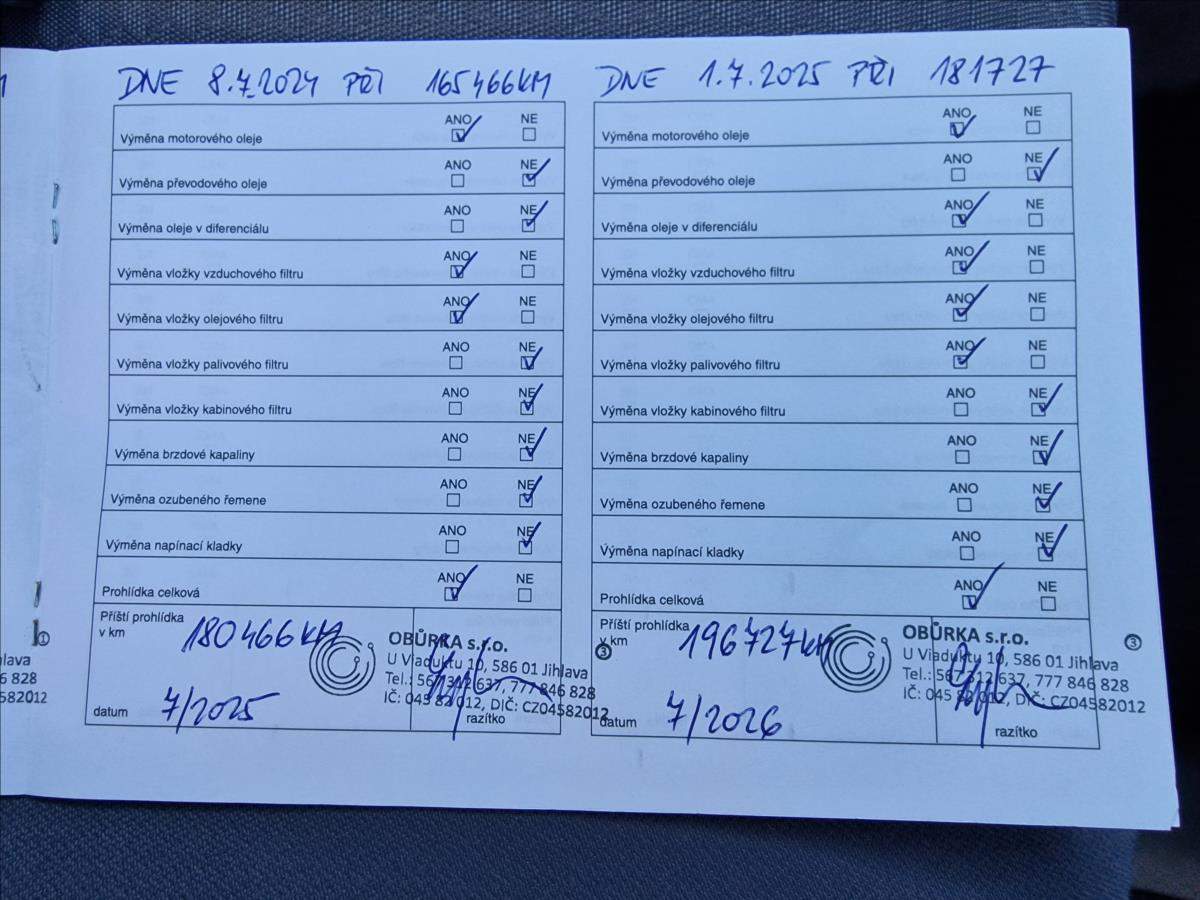 DNE 8.7.2024 PŘI 165466KM
ANO NE
Výměna motorového oleje
ANO NE
Výměna převodového oleje
ANO NE
Výměna oleje v diferenciálu
ANO NE
Výměna vložky vzduchového filtru
ANO NE
Výměna vložky olejového filtru
ANO NE
Výměna vložky palivového filtru
ANO NE
Výměna vložky kabinového filtru
ANO NE
Výměna brzdové kapaliny
ANO NE
Výměna ozubeného řemene
ANO NE
Výměna napínací kladky
ANO NE
Prohlídka celková
Příští prohlídka
v km
180466KM
OBŮRKA s.r.o.
U Viaduktu 10, 586 01 Jihlava
Tel.: 567 312 637, 777 846 828
IČ: 045 82 012, DIČ: CZ04582012
datum 7/2025
razítko
DNE 1.7.2025 PŘI 181727
ANO NE
Výměna motorového oleje
ANO NE
Výměna převodového oleje
ANO NE
Výměna oleje v diferenciálu
ANO NE
Výměna vložky vzduchového filtru
ANO NE
Výměna vložky olejového filtru
ANO NE
Výměna vložky palivového filtru
ANO NE
Výměna vložky kabinového filtru
ANO NE
Výměna brzdové kapaliny
ANO NE
Výměna ozubeného řemene
ANO NE
Výměna napínací kladky
ANO NE
Prohlídka celková
Příští prohlídka
v km
196727km
③
OBŮRKA s.r.o.
③
U Viaduktu 10, 586 01 Jihlava
Tel.: 567 312 637, 777 846 828
IČ: 045 82 012, DIČ: CZ04582012
datum 7/2026
razítko
①
lava
6 828
582012